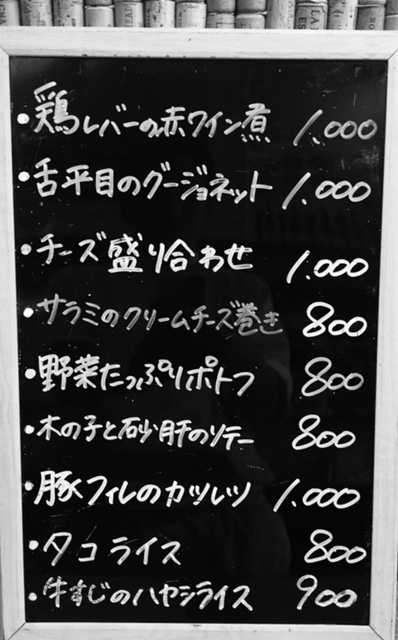 ・鶏レバーの赤ワイン煮 1,000
・舌平目のグージョネット 1,000
・チーズ盛り合わせ 1,000
・サラミのクリームチーズ巻き 800
・野菜たっぷりポトフ 800
・木の子と砂肝のソテー 800
・豚フィレのカツレツ 1,000
・タコライス 800
・牛すじのハヤシライス 900